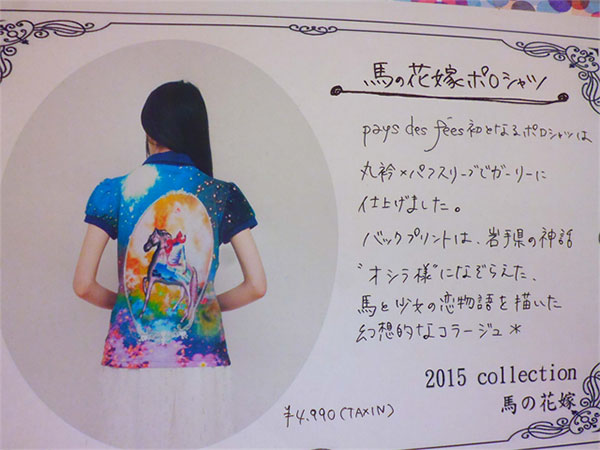 馬の花嫁ポロシャツ
pays des fées初となるポロシャツは
丸衿×パフスリーブでガーリーに
仕上げました。
バックプリントは、岩手県の神話
"オシラ様"になぞらえた、
馬と少女の恋物語を描いた
幻想的なコラージュ*
2015 collection
馬の花嫁
¥4,990(TAXIN)